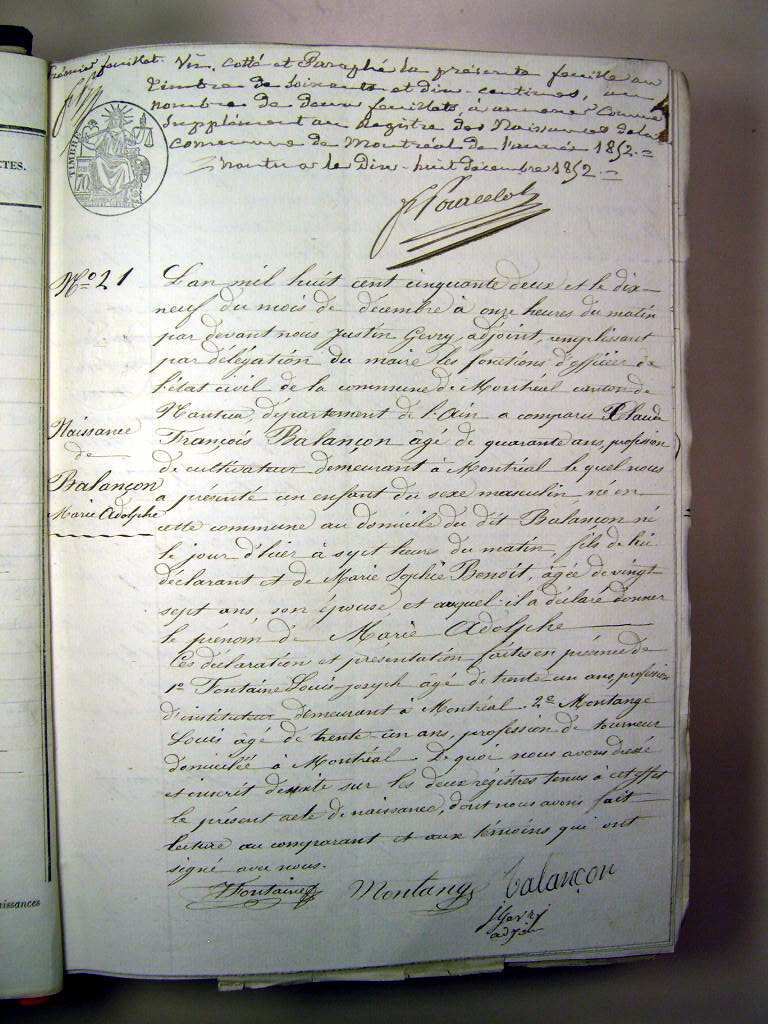 Premier feuillet. Vu, cotté et Paraphé la présente feuille au
timbre de soixante et dix centimes, au
nombre de deux feuillets, à annexer comme
Supplément au Registre des Naissances de la
commune de Montréal de l'année 1852.
Nantua le Dix-huit décembre 1852.
TIMBRE
CTES.
No 21
L'an mil huit cent cinquante deux et le dix-
neuf du mois de décembre à onze heures du matin
par devant nous Justin Gevry, adjoint, remplissant
par délégation du maire les fonctions d'officier de
l'état civil de la commune de Montréal canton de
Nantua, département de l'Ain a comparu Claude
François Balançon âgé de quarante ans, profession
de cultivateur demeurant à Montréal le quel nous
a présenté un enfant du sexe masculin né en
cette commune au domicile du dit Balançon né
le jour d'hier à sept heures du matin, fils de lui
déclarant et de Marie Sophie Benoit, âgée de vingt
sept ans son épouse et auquel il a déclaré donner
le prénom de Marie Adolphe
Naissance
de
Balançon
Marie Adolphe
Ces déclaration et présentation faites en présence de
1o Fontaine Louis joseph âgé de trente un ans, profession
d'instituteur demeurant à Montréal 2e Montange
Louis âgé de trente un ans, profession de tourneur
domicilié à Montréal. De quoi nous avons dressé
et inscrit de suite sur les deux régistres tenus à cet effet
le présent acte de naissance, dont nous avons fait
lecture au comparant et aux témoins qui ont
signé avec nous.
Fontaine Montange Balançon
J Gevry
adjoint
aissances